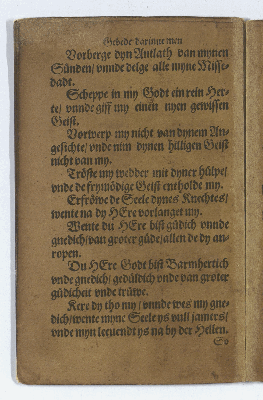 Gebede darinne men
Vorberge dyn Antlath van mynen
Sünden/ vnnde delge alle myne Misse-
dadt.
Scheppe in my Godt ein rein Her-
te/ vnnde giff my einen nyen gewissen
Geist.
Vorwerp my nicht van dynem An-
gesichte/ vnde nim dynen hilligen Geist
nicht van my.
Tröste my wedder mit dyner hülpe/
vnde de fryuödige Geist entholde my.
Erfröwe de Seele dynes Knechtes/
wente na dy HEre vorlanget my.
Wente du HEre bist güdich vnnde
gnedich/ van groter güde/ allen de dy an-
ropen.
Du HEre Godt bist Barmhertich
vnde gnedich/ gedüldich vnde van groter
güdicheit vnde trüwe.
Kere dy tho my/ vnnde wes my gne-
dich/ wente myne Seele ys vull jamers/
vnde myn leeuendt ys na by der Hellen.
So